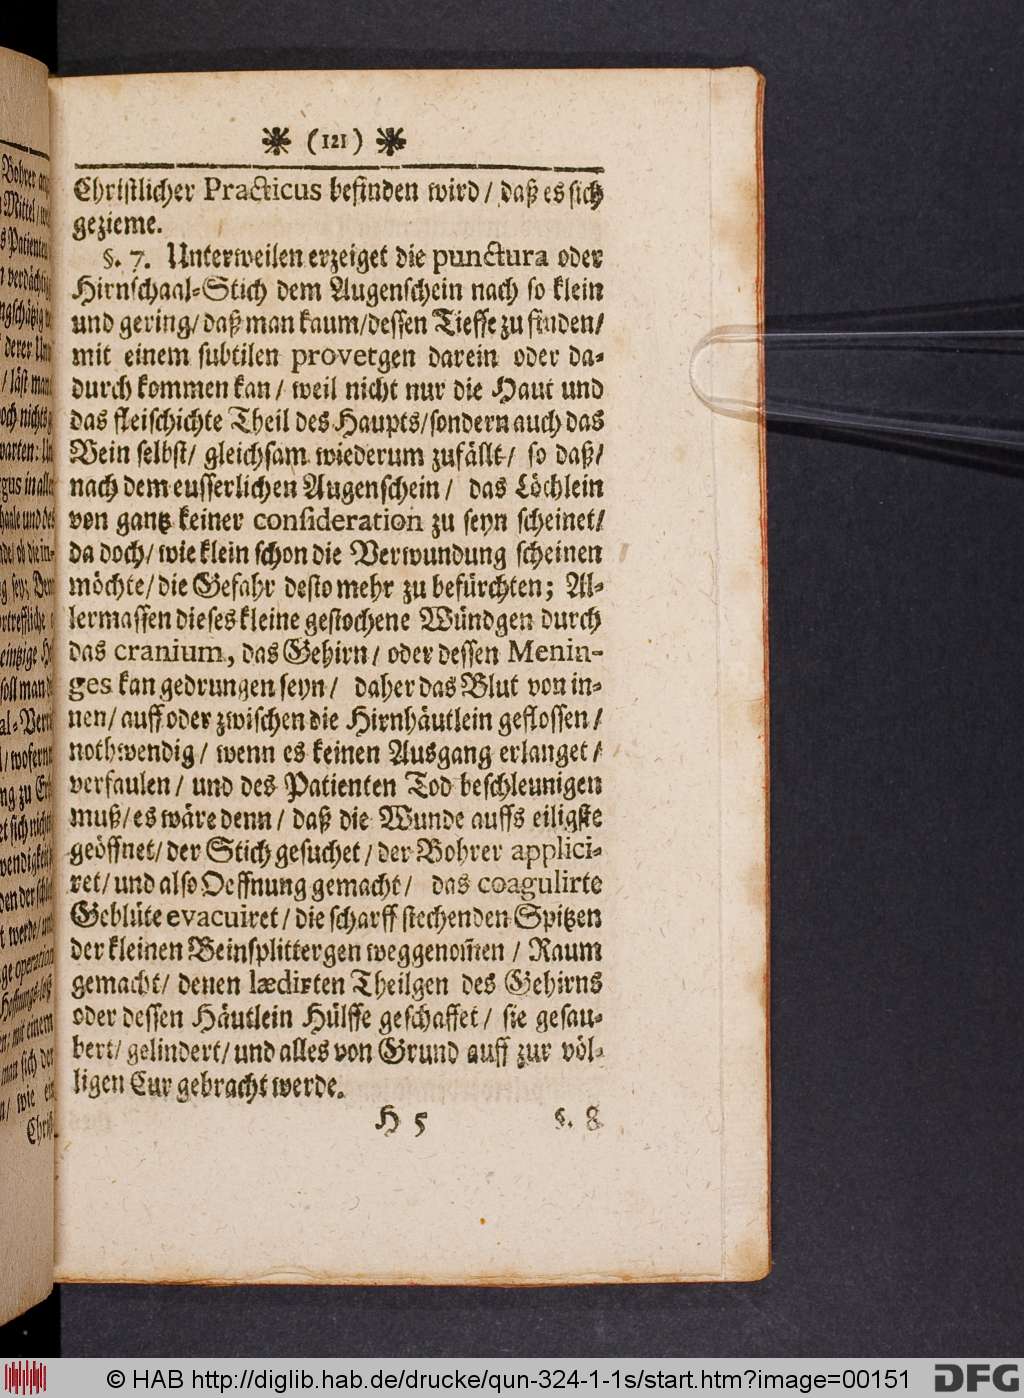 ❋ (121) ❋
Christlicher Practicus befinden wird / daß es sich
gezieme.
§. 7. Unterweilen erzeiget die punctura oder
Hirnschaal-Stich dem Augenschein nach so klein
und gering/ daß man kaum/dessen Tieffe zu finden/
mit einem subtilen provetgen darein oder da-
durch kommen kan / weil nicht nur die Haut und
das fleischichte Theil des Haupts/sondern auch das
Bein selbst/ gleichsam wiederum zufällt/ so daß/
nach dem eusserlichen Augenschein / das Löchlein
von gantz keiner consideration zu seyn scheinet/
da doch/ wie klein schon die Verwundung scheinen
möchte/ die Gefahr desto mehr zu befürchten; Al-
lermassen dieses kleine gestochene Wündgen durch
das cranium, das Gehirn / oder dessen Menin-
ges kan gedrungen seyn / daher das Blut von in-
nen/ auff oder zwischen die Hirnhäutlein geflossen /
nothwendig / wenn es keinen Ausgang erlanget /
verfaulen / und des Patienten Tod beschleunigen
muß/ es wäre denn / daß die Wunde auffs eiligste
geöffnet/ der Stich gesuchet / der Bohrer applici-
ret/ und also Oeffnung gemacht / das coagulirte
Geblüte evacuiret / die scharff stechenden Spitzen
der kleinen Beinsplittergen weggenom̃en / Raum
gemacht/ denen lædirten Theilgen des Gehirns
oder dessen Häutlein Hülffe geschaffet / sie gesau-
bert/ gelindert/ und alles von Grund auff zur völ-
ligen Cur gebracht werde.
H 5 §. 8
© HAB http://diglib.hab.de/drucke/qun-324-1-1s/start.htm?image=00151
DFG